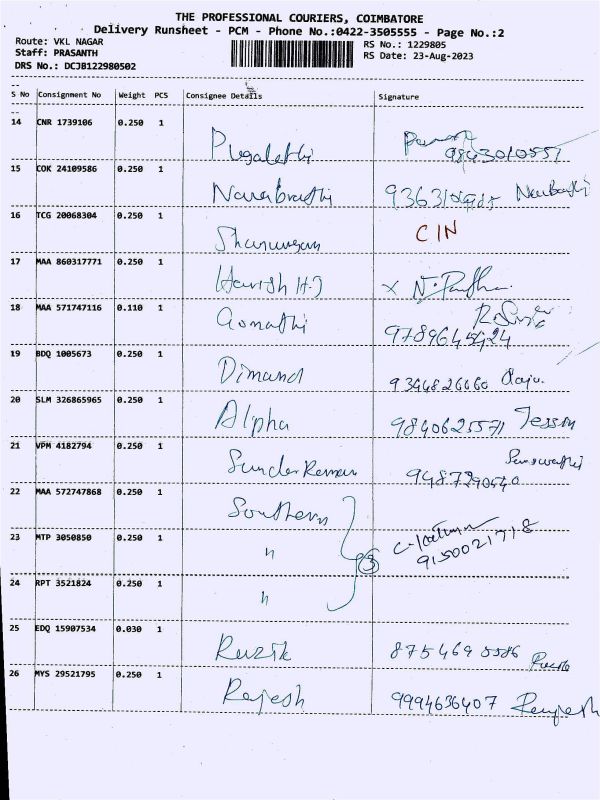 THE PROFESSIONAL COURIERS, COIMBATORE
Delivery Runsheet - PCM - Phone No.:0422-3505555 - Page No.:2
Route: VKL NAGAR
Staff: PRASANTH
DRS No.: DCJB122980502
RS No.: 1229805
RS Date: 23-Aug-2023
S No Consignment No Weight PCS Consignee Details Signature
14 CNR 1739106 0.250 1 Pugalethi 9843010551
15 COK 24109586 0.250 1
16 TCG 20068304 0.250 1 Shanmugam CIN
17 MAA 860317771 0.250 1 Harish H.J
18 MAA 571747116 0.110 1 Gomathi
19 BDQ 1005673 0.250 1 Dimand 9344826660 Raju.
20 SLM 326865965 0.250 1 Alpha 9840625571
21 VPM 4182794 0.250 1 Sunder Raman 9487290540
22 MAA 572747868 0.250 1 Southern
23 MTP 3050850 0.250 1 " 3 9150021718
24 RPT 3521824 0.250 1 "
25 EDQ 15907534 0.030 1 Ruzik 875469 5586
26 MYS 29521795 0.250 1 Rajesh 9994636407